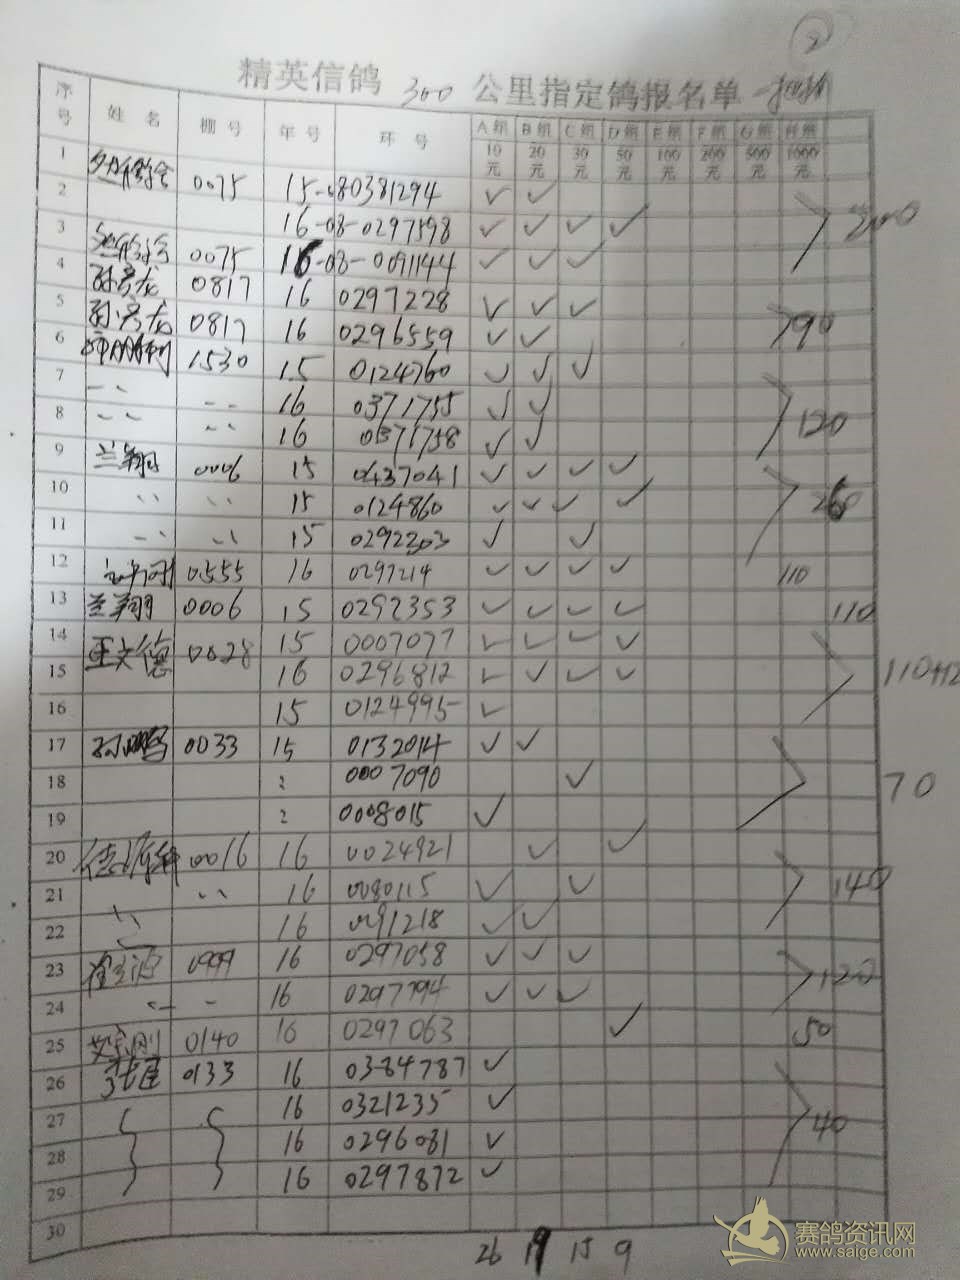 2
精英信鸽 300 公里指定鸽报名单
序号 姓 名 棚 号 年 号 环 号 A组 10元 B组 20元 C组 30元 D组 50元 E组 100元 F组 200元 G组 500元 H组 1000元
1 0075 15-080381294 ✓ ✓
2 16-08-0297598 ✓ ✓ ✓ ✓ 200
3 0075 16-08-0091144 ✓ ✓ ✓
4 孙彦龙 0817 16 0297228 ✓ ✓ ✓
5 孙彦龙 0817 16 0296559 ✓ ✓ 90
6 1530 15 0124760 ✓ ✓ ✓
7 16 0371755 ✓ ✓ 120
8 16 0371758 ✓ ✓
9 兰翔 0006 15 0437041 ✓ ✓ ✓ ✓
10 15 0124860 ✓ ✓ ✓ ✓ 260
11 15 0292203 ✓ ✓
12 0555 16 0297214 ✓ ✓ ✓ ✓ 110
13 兰翔 0006 15 0292353 ✓ ✓ ✓ ✓ 110
14 王文德 0028 15 0007077 ✓ ✓ ✓ ✓
15 16 0296812 ✓ ✓ ✓ ✓ 110+12
16 15 0124995 ✓
17 孙鹏 0033 15 0132014 ✓ ✓
18 0007090 ✓ 70
19 0008015 ✓
20 0016 16 0024921 ✓ ✓
21 16 0080115 ✓ ✓ 140
22 16 0091218 ✓ ✓
23 0999 16 0297058 ✓ ✓ ✓ 120
24 16 0297794 ✓ ✓ ✓
25 0140 16 0297063 ✓ 50
26 0133 16 0384787 ✓
27 16 0321235 ✓ 40
28 16 0296081 ✓
29 16 0297872 ✓
30
26 19 15 9
赛鸽资讯网
www.saige.com